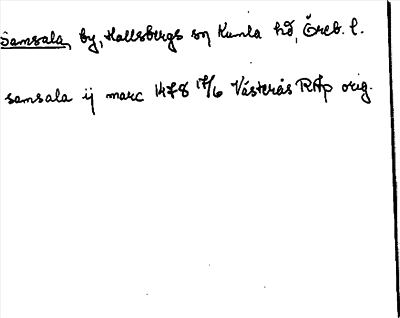 Samsala, by, Hallsbergs sn Kumla hd, Öreb. l.
samsala ij marc 1478 17/6 Västerås RAp orig.